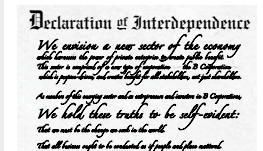 Declaration of Interdependence
We envision a new sector of the economy
which harnesses the power of private enterprise to create public benefit.
This sector is comprised of a new type of corporation - the B Corporation -
which is purpose-driven, and creates benefit for all stakeholders, not just shareholders.
As members of this emerging sector and as entrepreneurs and investors in B Corporations,
We hold these truths to be self-evident:
That we must be the change we seek in the world.
That all business ought to be conducted as if people and place mattered.